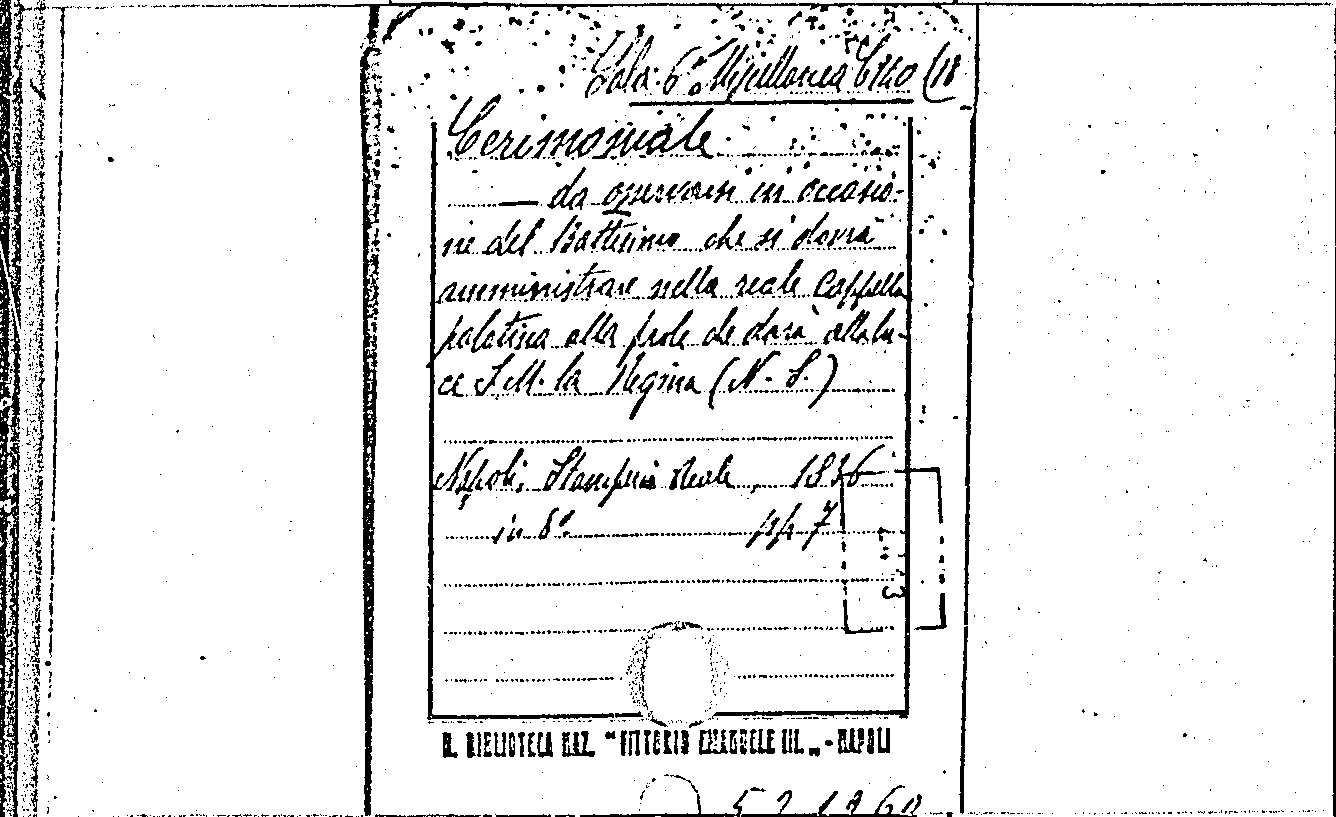 Sala 6ª Miscellanea C 140 (18
Cerimoniale
— da osservarsi in occasio-
ne del Battesimo che si dovrà
amministrare nella reale Cappella
palatina alla prole che darà alla lu-
ce S. M. la Regina (N. S.)
Napoli, Stamperia Reale, 1836
in 8º pp 7
R. BIBLIOTECA NAZ. "VITTORIO EMANUELE III." - NAPOLI